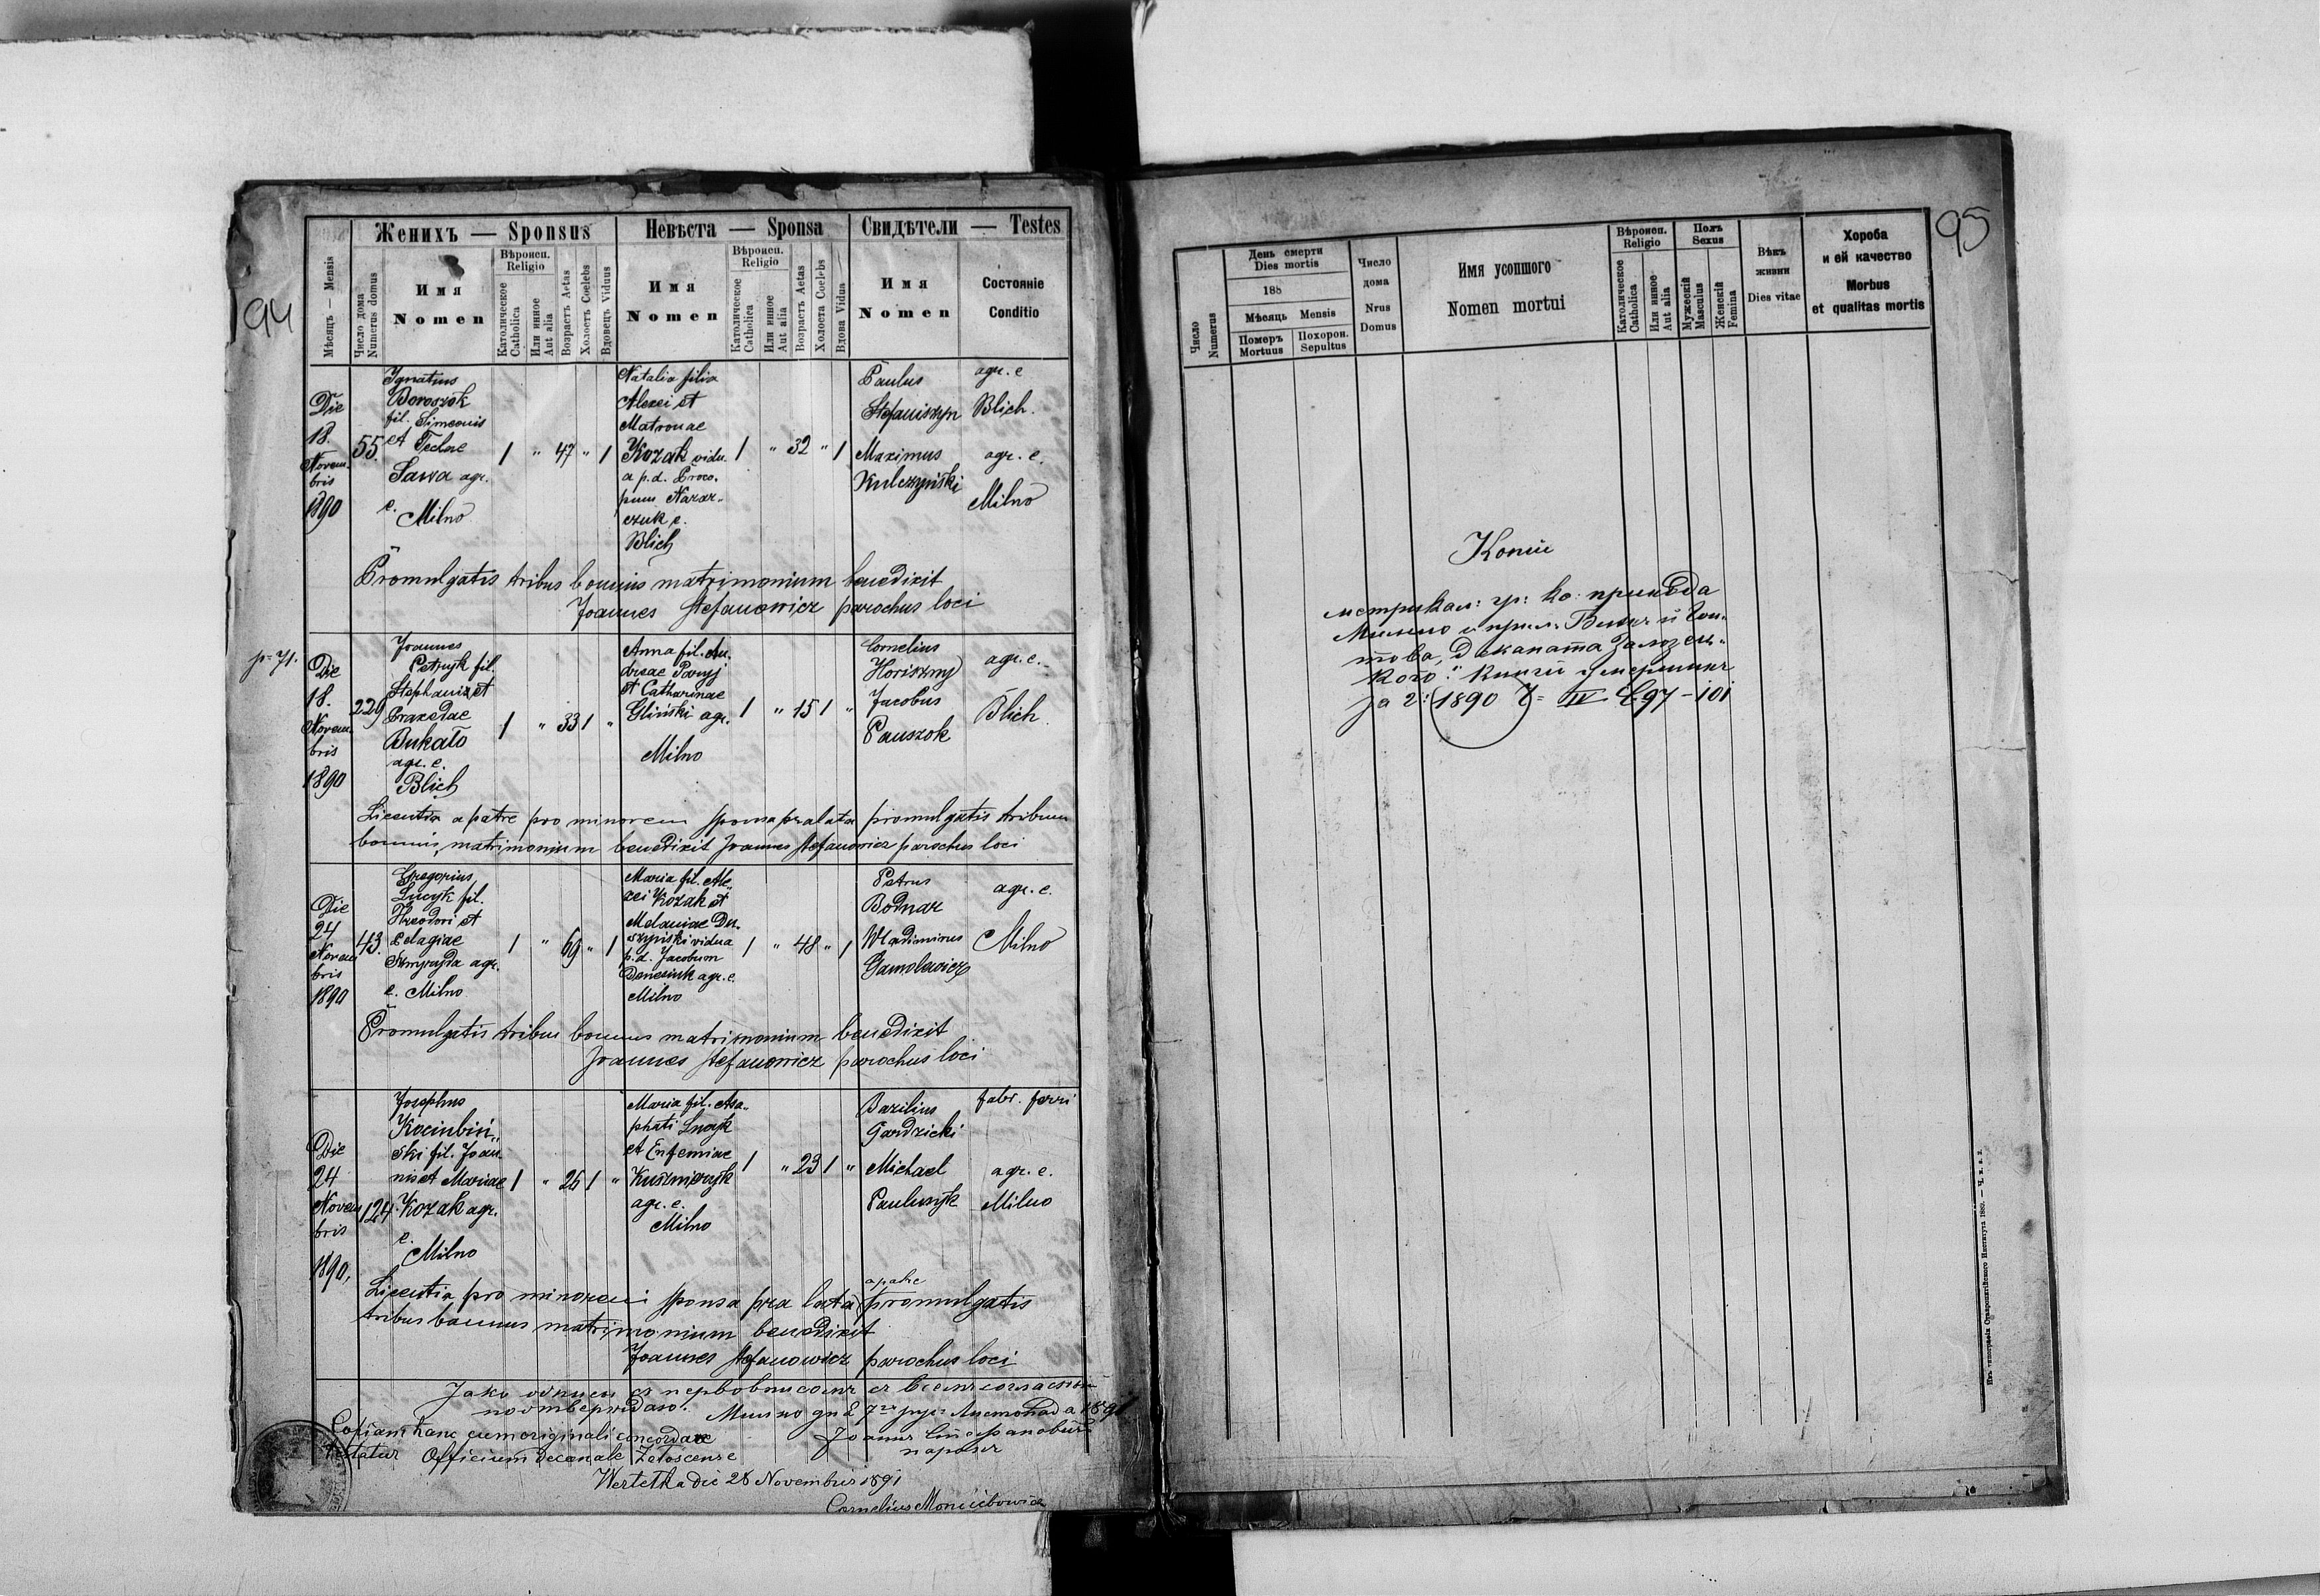 94
Женихъ — Sponsus
Невѣста — Sponsa
Свидѣтели — Testes
Мѣсяцъ — Mensis
Число дома
Numerus domus
Имя
Nomen
Вѣроисп.
Religio
Католическое
Catholica
Или инное
Aut alia
Возрастъ Aetas
Холостъ Coelebs
Вдовецъ Viduus
Имя
Nomen
Вѣроисп.
Religio
Католическое
Catholica
Или инное
Aut alia
Возрастъ Aetas
Холоста Coelebs
Вдова Vidua
Имя
Nomen
Состояніе
Conditio
Die
18.
Novem
bris
1890
55.
Ignatius
Boroszok
fil. Simeonis
et Teclae
Sawa agr.
e. Milno
1 " 47 " 1
Natalia filia
Alexei et
Matronae
Kozak vidu.
a p.d. Proco.
pium Nazar„
czuk e.
Blich
1 " 32 " 1
Paulus
Stefaniszyn
Maximus
Kulczyński
agr. e
Blich.
agr. e.
Milno
Promulgatis tribus bannis matrimonium benedixit
Joannes Stefanowicz parochus loci
p. 71.
Die
18.
Novem
bris
1890
229
Joannes
Petryk fil.
Stephani et
Praxedae
Bukało
agr. e.
Blich
1 " 33 1 "
Anna fil. An.
dreae Paryj
et Catharinae
Gliński agr.
Milno
1 " 15 1 "
Cornelius
Horiszny
Jacobus
Pauszok
agr. e.
Blich.
Licentia a patre pro minorem sponsa pralata promulgatis tribum
bannis, matrimonium benedixit Joannes Stefanowicz parochus loci
Die
24
Novem
bris
1890
43.
Gregorius
Lucyk fil.
Theodori et
Pelagiae
agr.
e. Milno
1 " 69 " 1
Maria fil. Ale„
xei Kozak et
Melaniae Du„
szyński vidua
p.d. Jacobum
agr. e.
Milno
1 " 48 " 1
Petrus
Bodnar
Wladimirus
agr. e.
Milno
Promulgatis tribus bannus matrimonium benedixit
Joannes Stefanowicz parochus loci
Die
24
Novem
bris
1890,
124.
Josephus
Kociubiń„
ski fil. Joan
nis et Mariae
Kozak agr.
e.
Milno
1 " 25 1 "
Maria fil. Asa„
phati Lucyk
et Eufemiae
agr. e.
Milno
1 " 23 1 "
Bazilius
Gardzicki
Michael
Pauluszyk
fabr. ferri
agr. e.
Milno
a patre
Licentia pro minorem sponsa pra lata promulgatis
tribus bannus matrimonium benedixit
Joannes Stefanowicz parochus loci
Яко
потверждаю.
Cotiam hanc cum originali concordare
testatur Officium decanale Załoscense
Wertełka die 28 Novembris 1891
Cornelius
95
Число
Numerus
День смерти
Dies mortis
188
Мѣсяць Mensis
Померъ
Mortuus
Похорон.
Sepultus
Число
дома
Nrus
Domus
Имя усопшого
Nomen mortui
Вѣроисп.
Religio
Католическое
Catholica
Или инное
Aut alia
Полъ
Sexus
Мужескій
Masculus
Женскій
Femina
Вѣкъ
живни
Dies vitae
Хороба
и ей качество
Morbus
et qualitas mortis
Копіи
метрикал: гр: ко: прихода
Мильно и прил:
това, Деканата Залозец„
кого: Книги умершихъ
за г: 1890 T= IV C 97 – 101
Изъ типографіи Ставропигійского Института